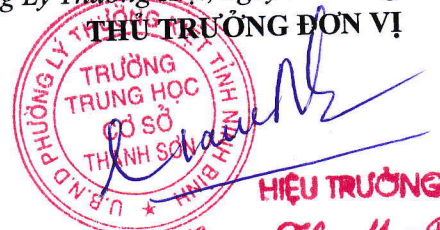 Lý Thường
THỦ TRƯỞNG ĐƠN VỊ
U.B.N.D PHƯỜNG LÝ THƯỜNG KIỆT TỈNH NINH BÌNH
TRƯỜNG
TRUNG HỌC
CƠ SỞ
THANH SƠN
HIỆU TRƯỞNG